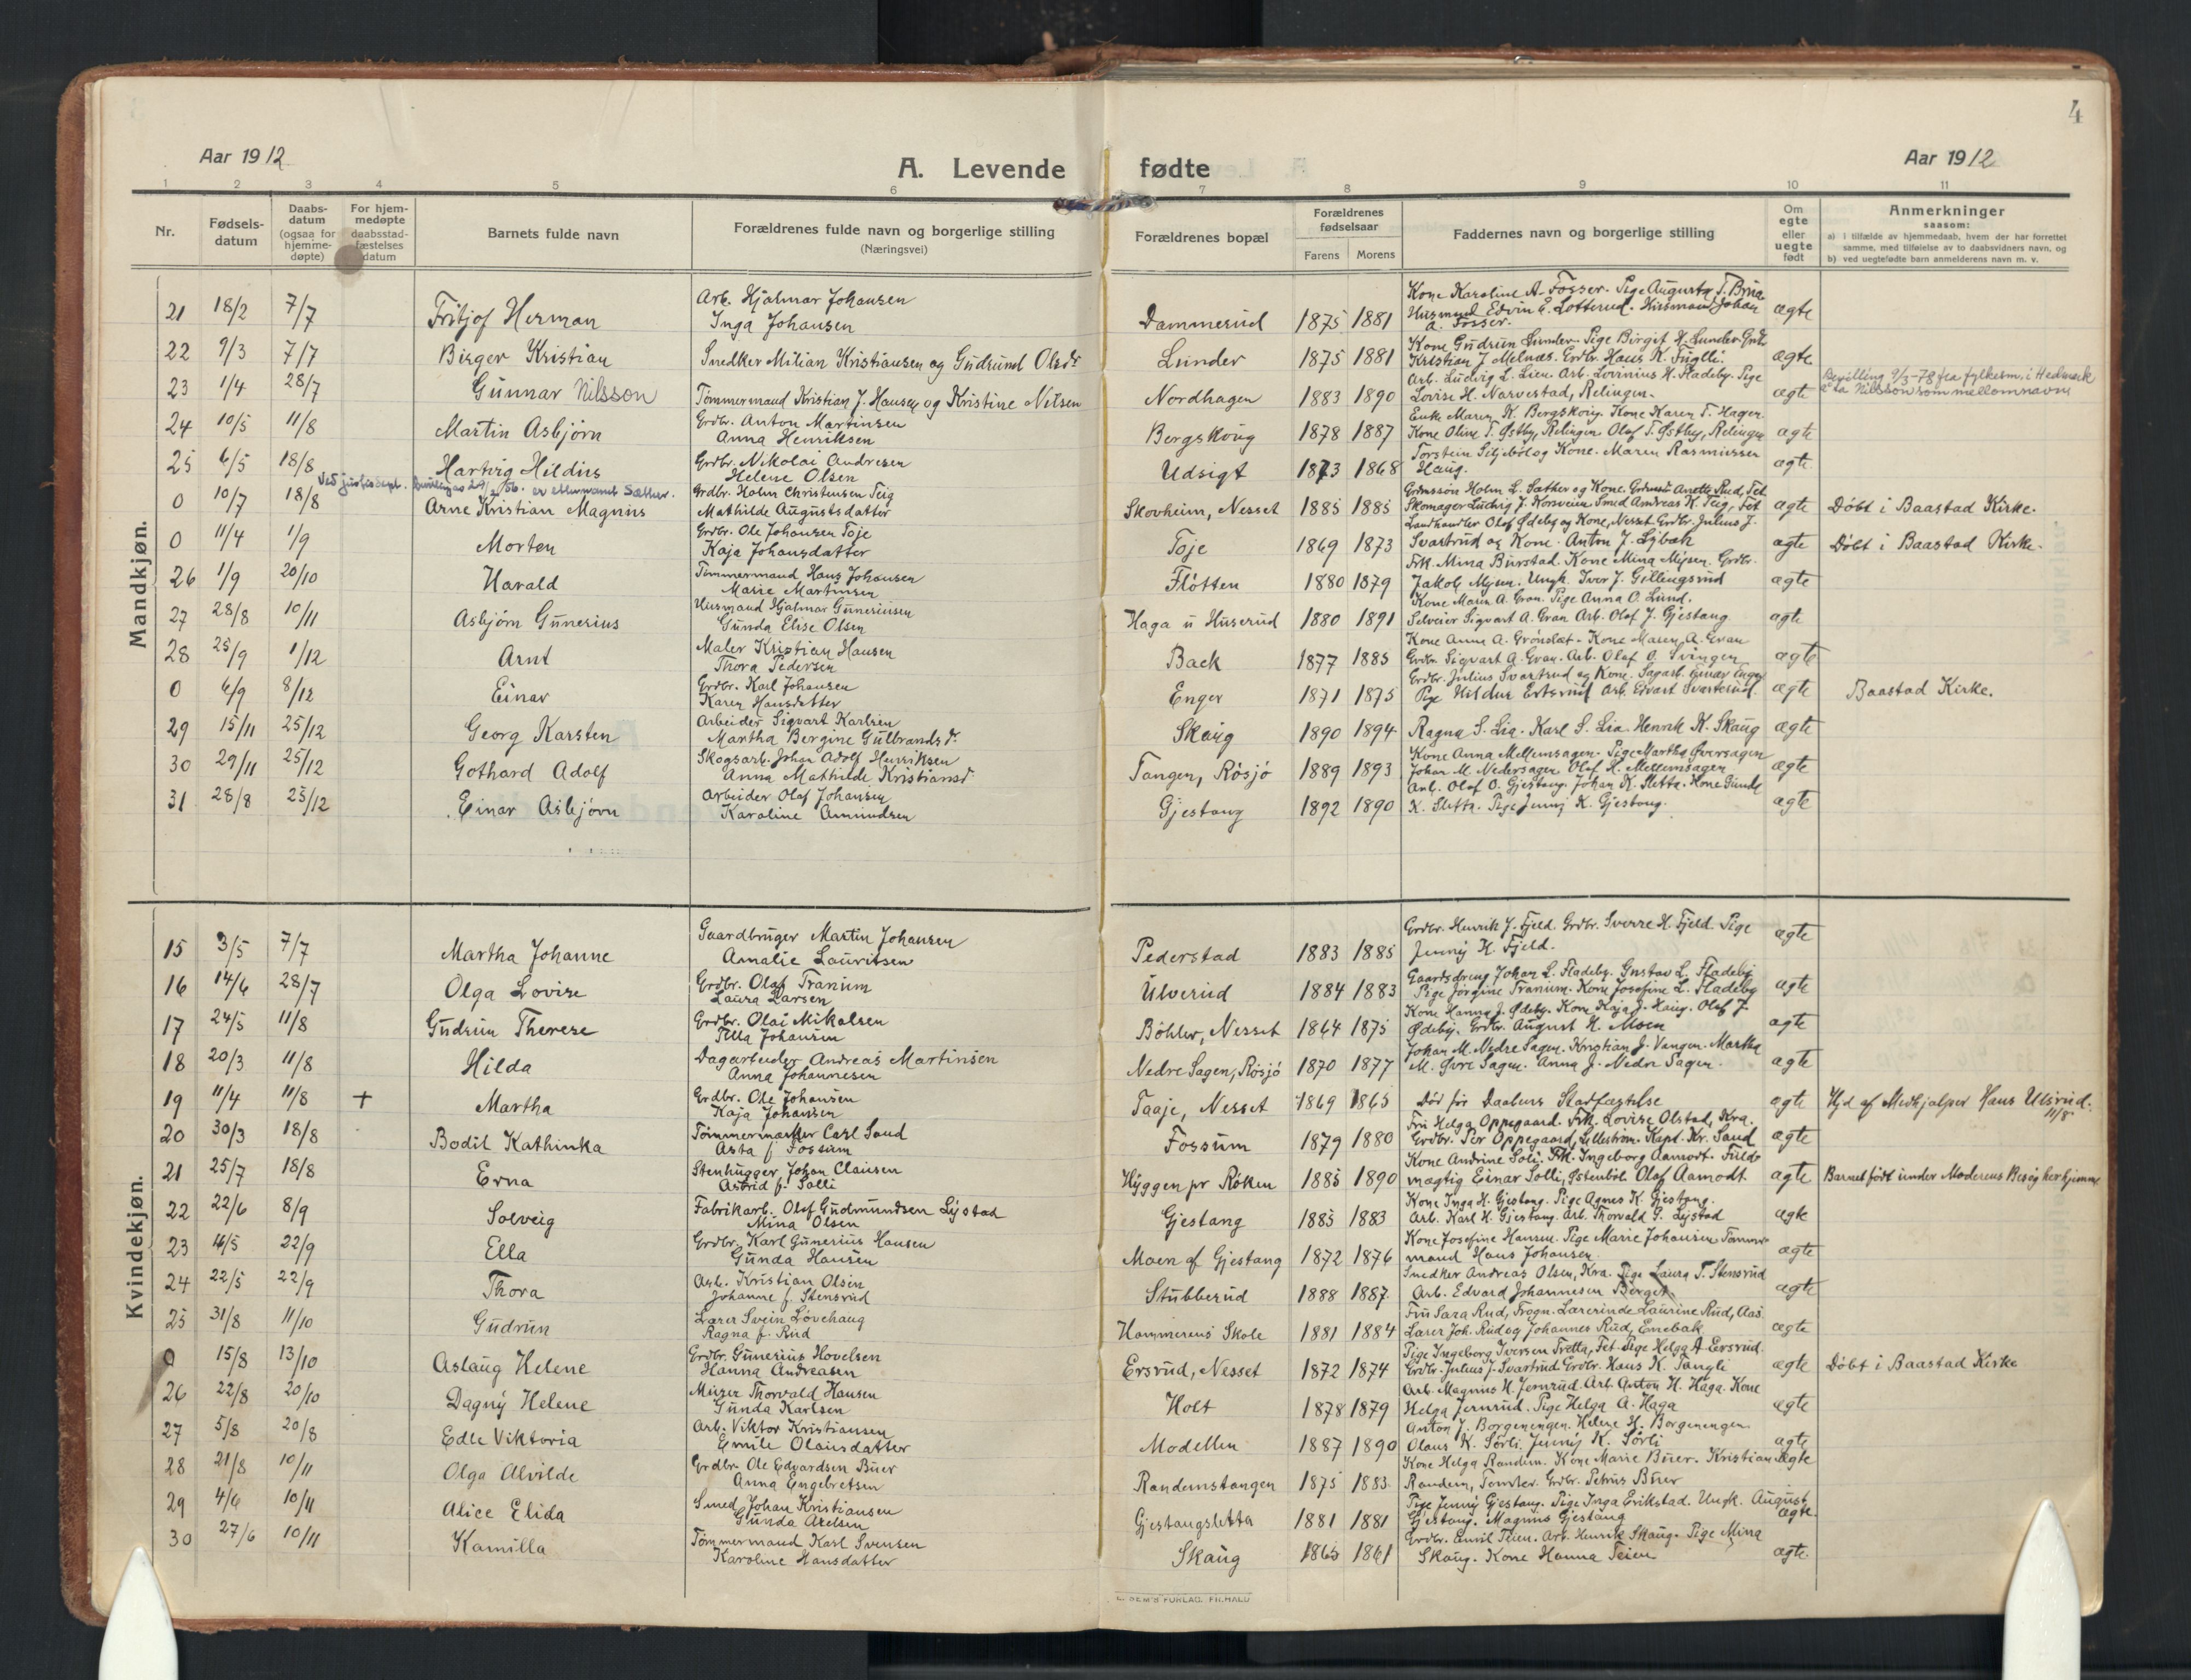 4
Aar 1912
A. Levende fødte
Aar 1912
1 2 3 4 5 6 7 8 9 10 11
Nr.
Fødsels-
datum
Daabs-
datum
(ogsaa for
hjemme-
døpte)
For hjem-
medøpte
daabsstad-
fæstelses
datum
Barnets fulde navn
Forældrenes fulde navn og borgerlige stilling
(Næringsvei)
Forældrenes bopæl
Forældrenes
fødselsaar
Farens Morens
Faddernes navn og borgerlige stilling
Om
egte
eller
uegte
født
Anmerkninger
saasom:
a) i tilfælde av hjemmedaab, hvem der har forrettet
samme, med tilføielse av to daabsvidners navn, og
b) ved uegtefødte barn anmelderens navn m. v.
Mandkjøn.
Kone Karoline A. Fosser. Pige Augusta T.
21 18/2 7/7 Fritjof Herman Arb. Hjalmar Johansen
Inga Johansen Dammerud 1875 1881 Husmand Edvin E. Lotterud. Husmand Johan
A. Fosser. ægte
Kone Gudrun Lunder. Pige Birgit H. Lunder. Grdb.
22 9/3 7/7 Birger Kristian Snedker Milian Kristiansen og Gudrund Olsdr Lunder 1875 1881 Kristian J. Melnæs. Grdbr. Hans K. Fuglli. ægte
Arb. Ludvig L. Lien. Arb. Lovinius H. Fladeby. Pige
23 1/4 28/7 Gunnar Nilsson Tømmermand Kristian J. Hansen og Kristine Nilsen Nordhagen 1883 1890 Lovise H. Narvestad, Relingen. ægte Bevilling 9/3-78 fra fylkesm. i Hedmark
å ta Nilsson som mellomnavn
Enke Maren K. Bergskoug. Kone Karen T. Hagen
24 10/5 11/8 Martin Asbjørn Grdbr. Anton Martinsen
Anna Henriksen Bergskoug 1878 1887 Kone Oline T. Østby, Relingen Olaf T. Østby, Relingen ægte
Torstein Siljebøl og Kone. Maren Rasmussen
25 6/5 18/8 Hartvig Hildius Grdbr. Nikolai Andresen
Helene Olsen Udsigt 1873 1868 Haug. ægte
Ved justisdept. bevilling av 29/2 56. er etternavnet Sæther.
0 10/7 18/8 Arne Kristian Magnus Grdbr. Holm Christensen Teig
Mathilde Augustsdatter Skovheim, Nesset 1885 1885 Grdmssøn Holm L. Sæther og Kone. Anette Rud, Fet
Skomager Ludvig J. Korsveien Smed Andreas K. Teig, Fet ægte Døbt i Baastad Kirke.
Landhandler Olaf Ødeby og Kone, Nesset Grdbr. Julius J.
0 11/4 1/9 Morten Grdbr. Ole Johansen Toje
Kaja Johansdatter Toje 1869 1873 Svartrud og Kone. Anton J. Lybæk ægte Døbt i Baastad Kirke.
Frk. Mina Burstad. Kone Mina Mysen. Grdbr.
26 1/9 20/10 Harald Tømmermand Hans Johansen
Marie Martinsen Fløtten 1880 1879 Jakob Mysen. Ungk. Iver J. Gillingsrud ægte
Kone Maren A. Gran. Pige Anna O. Lund.
27 28/8 10/11 Asbjørn Gunerius Husmand Hjalmar Guneriusen
Gunda Elise Olsen Haga u Huserud 1880 1891 Selveier Sigvart A. Gran Arb. Olaf J. Gjestang ægte
Kone Anna A. Grønslæt. Kone Maren A. Gran
28 25/9 1/12 Arnt Maler Kristian Hansen
Thora Pedersen Back 1877 1885 Grdbr. Sigvart A. Gran. Arb. Olaf O. Svingen ægte
Grdbr. Julius Svartrud og Kone. Sagarb. Einar Enger
0 6/9 8/12 Einar Grdbr. Karl Johansen
Karen Hansdatter Enger 1871 1875 Pige Hildur Ertsrud Arb. Edvart Svarterud. ægte Baastad Kirke.
29 15/11 25/12 Georg Karsten Arbeider Sigvart Karlsen
Martha Bergine Gulbrandsd. Skaug 1890 1894 Ragna S. Lia. Karl S. Lia. Henrik K. Skaug ægte
Kone Anna Mellemsagen. Pige Martha Øversagen
30 29/11 25/12 Gothard Adolf Skogsarb. Johan Adolf Henriksen
Anna Mathilde Kristiansd. Tangen, Røsjø 1889 1893 Johan M. Nedersagen Olaf H. Mellemsagen ægte
Arb. Olaf O. Gjestang. Johan K. Sletta. Kone Gunda
31 28/8 25/12 Einar Asbjørn Arbeider Olaf Johansen
Karoline Amundsen Gjestang 1892 1890 K. Sletta. Pige Jenny K. Gjestang. ægte
Kvindekjøn.
15 3/5 7/7 Martha Johanne Gaardbruger Martin Johansen
Amalie Lauritsen Pederstad 1883 1885 Grdbr. Henrik J. Fjeld. Grdbr. Sverre H. Fjeld. Pige
Jenny H. Fjeld. ægte
16 14/6 28/7 Olga Lovise Grdbr. Olaf Tranum
Laura Larsen Ulverud 1884 1883 Gaardsdreng Johan L. Fladeby. Gustav L. Fladeby
Pige Jørgine Tranum. Kone Josefine L. Fladeby ægte
17 24/5 11/8 Gudrun Therese Grdbr. Olai Mikalsen
Tilla Johansen Bøhler, Nesset 1864 1875 Kone Hanna J. Ødeby. Kone Kaja J. Haug. Olaf J.
Ødeby. Grdbr. August H. Moen ægte
18 20/3 11/8 Hilda Dagarbeider Andreas Martinsen
Anna Johannesen Nedre Sagen, Røsjø 1870 1877 Johan M. Nedre Sagen. Kristian J. Vangen. Martha
M. Øvre Sagen. Anna J. Nedre Sagen. ægte
19 11/4 11/8 + Martha Grdbr. Ole Johansen
Kaja Johansen Taaje, Nesset 1869 1865 Død før Daabens Stadfæstelse ægte Hjd af Medhjælper Hans Ulsrud.
11/8
20 30/3 18/8 Bodil Kathinka Tømmermærker Carl Sand
Asta f. Fossum Fossum 1879 1880 Fru Helga Oppegaard. Frk. Lovise Olstad, Kra.
Grdbr. Per Oppegaard, Lillestrøm. Kapt. Kr. Sand ægte
21 25/7 18/8 Erna Stenhugger Johan Clausen
Astrid f. Solli Hyggen pr Røken 1885 1890 Kone Andrine Soli. Frk. Ingeborg Aamodt. Fuld-
mægtig Einar Solli, Østenbøl. Olaf Aamodt. ægte Barnet født under Moderens Besøg her hjemme
22 22/6 8/9 Solveig Fabrikarb. Olaf Gudmundsen Lystad
Mina Olsen Gjestang 1885 1883 Kone Inga H. Gjestang. Pige Agnes K. Gjestang.
Arb. Karl H. Gjestang. Arb. Thorvald G. Lystad ægte
23 16/5 22/9 Ella Grdbr. Karl Gunerius Hansen
Gunda Hansen Moen af Gjestang 1872 1876 Kone Josefine Hansen. Pige Marie Johansen Tømmer-
mand Hans Johansen. ægte
24 22/5 22/9 Thora Arb. Kristian Olsen
Johanne f. Stensrud Stubberud 1888 1887 Snedker Andreas Olsen, Kra. Pige Laura T. Stensrud
Arb. Edvard Johannesen Berger. ægte
25 31/8 11/10 Gudrun Lærer Svein Løvehaug
Ragna f. Rud Hammerens Skole 1881 1884 Fru Sara Rud, Frogn. Lærerinde Laurine Rud, Aas.
Lærer Joh. Rud og Johannes Rud, Enebak ægte
0 15/8 13/10 Aslaug Helene Grdbr. Gunerius Hovelsen
Hanna Andreasen Ersrud, Nesset 1872 1874 Pige Ingeborg Iversen Tretta, Fet. Pige Helga A. Eersrud.
Grdbr. Julius J. Svartrud Grdbr. Hans K. Tangli ægte Døbt i Baastad Kirke
26 22/8 20/10 Dagny Helene Murer Thorvald Hansen
Gunda Karlsen Holt 1878 1879 Arb. Magnus H. Jernrud. Arb. Anton H. Haga. Kone
Helga Jernrud. Pige Helga A. Haga ægte
27 5/8 20/8 Edle Viktoria Arb. Viktor Kristiansen
Emile Olausdatter Modellen 1887 1890 Anton J. Borgenengen. Helene H. Borgenengen.
Olaus K. Sørli. Jenny K. Sørli ægte
28 21/8 10/11 Olga Alvilde Grdbr. Ole Edvardsen Buer
Anna Engebretsen Randemstangen 1875 1883 Kone Helga Randem. Kone Marie Buer. Kristian
Randem, Tomter. Grdbr. Petrus Buer ægte
29 4/6 10/11 Alice Elida Smed Johan Kristiansen
Gunda Axelsen Gjestangsletta 1881 1881 Pige Jenny Gjestang. Pige Inga Erikstad. Ungk. August
Gjestang. Magnus Gjestang ægte.
30 27/6 10/11 Kamilla Tømmermand Karl Svensen
Karoline Hansdatter Skaug 1865 1861 Grdbr. Emil Teien. Arb. Henrik Skaug. Pige Mina
Skaug. Kone Hanna Teien ægte.